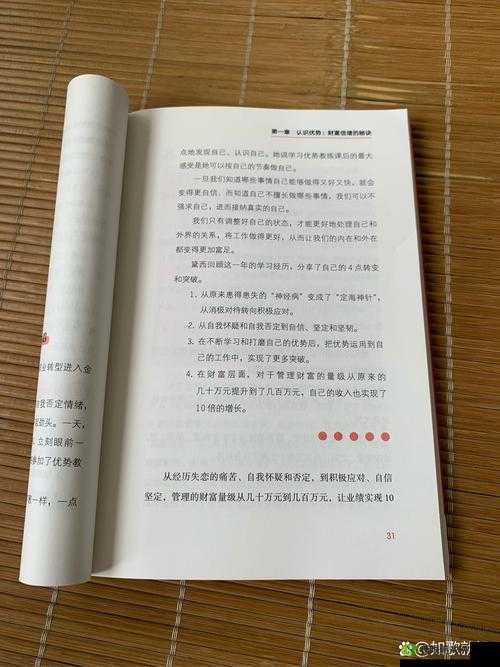 业转型进入金
我否定情绪，
劲头。一天，
立刻眼前一
参加了优势教
第一样，一点
第一章 认识优势：财富倍增的秘诀
点地发现自己、认识自己。她说学习优势教练课后的最大
感受是她可以按自己的节奏做自己。
一旦我们知道哪些事情自己能够做得又好又快，就会
变得更自信，而知道自己不擅长做哪些事情，我们可以不
强求自己，进而接纳真实的自己。
我们只有调整好自己的状态，才能更好地处理自己和
外界的关系，将工作做得更好，从而让我们的内在和外在
都变得更加富足。
黛西回顾这一年的学习经历，分享了自己的4点转变
和突破。
1. 从原来患得患失的“神经病”变成了“定海神针”，
从消极对待转向积极应对。
2. 从自我怀疑和自我否定到自信、坚定和坚韧。
3. 在不断学习和打磨自己的优势后，把优势运用到自
己的工作中，实现了更多突破。
4. 在财富层面，对于管理财富的量级从原来的
几十万元提升到了几百万元，自己的收入也实现了
10倍的增长。
从经历失恋的痛苦、自我怀疑和否定，到积极应对、自信
坚定，管理的财富量级从几十万元到几百万元，让业绩实现10
31